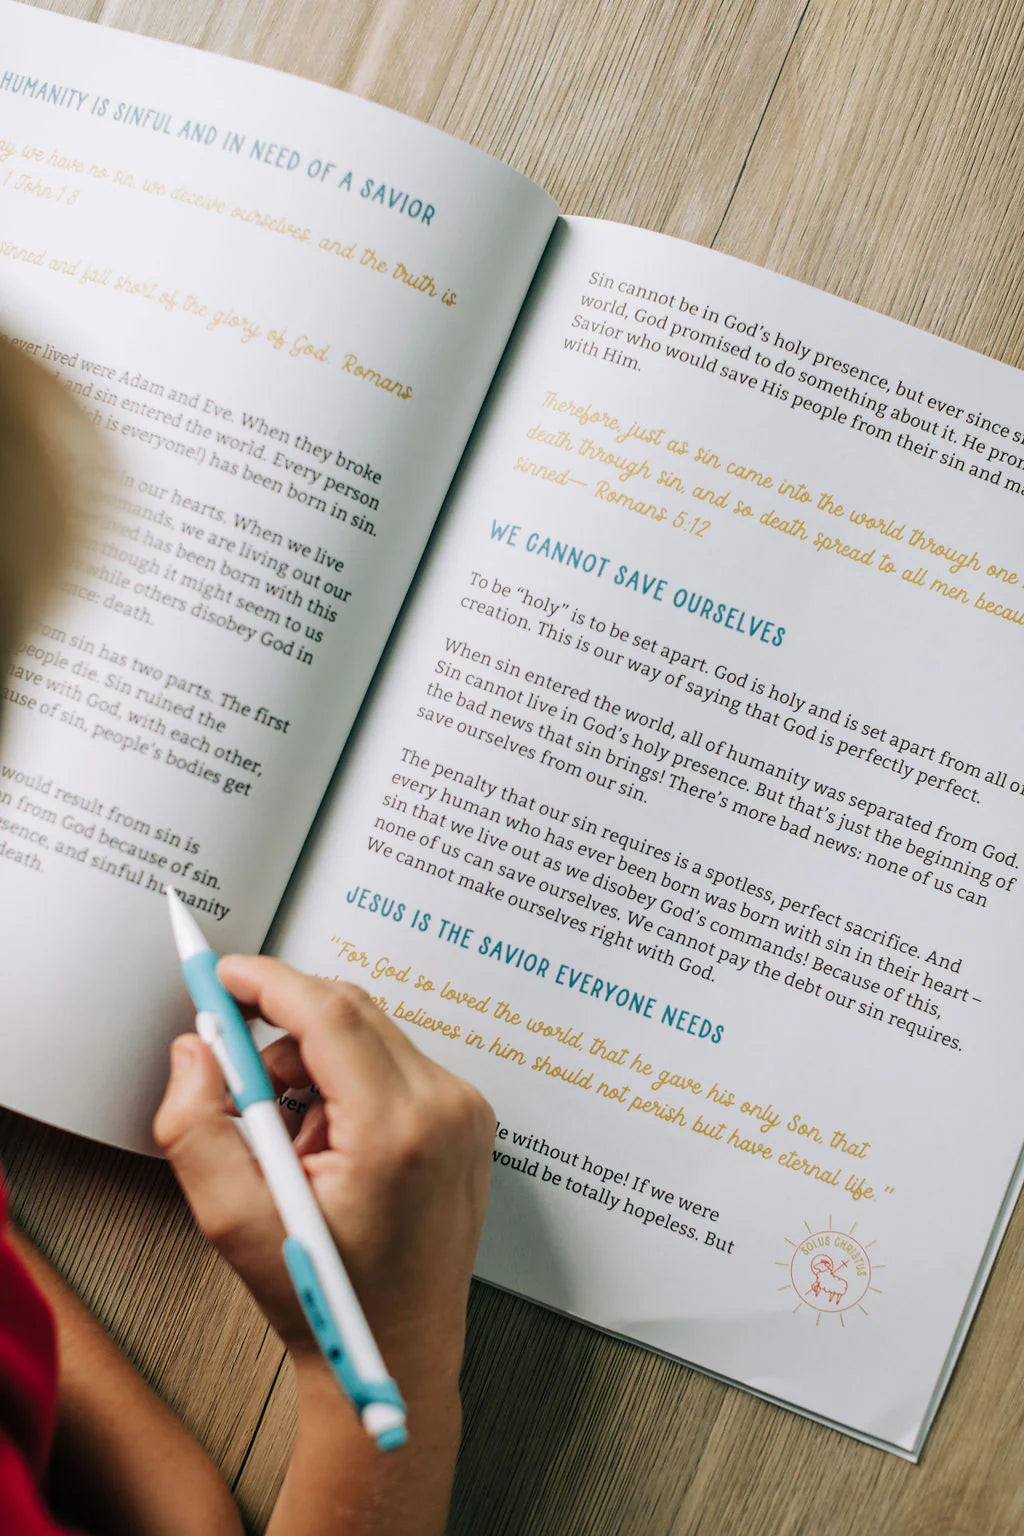 HUMANITY IS SINFUL AND IN NEED OF A SAVIOR
we have no sin, we deceive ourselves, and the truth is
1 John 1:8
sinned and fall short of the glory of God. Romans
ever lived were Adam and Eve. When they broke
and sin entered the world. Every person
is everyone!) has been born in sin.
in our hearts. When we live
we are living out our
has been born with this
though it might seem to us
while others disobey God in
death.
sin has two parts. The first
people die. Sin ruined the
have with God, with each other,
of sin, people's bodies get
would result from sin is
from God because of sin.
and sinful humanity
death.
Sin cannot be in God's holy presence, but ever since
world, God promised to do something about it. He
Savior who would save His people from their sin and
with Him.
Therefore, just as sin came into the world through one
death through sin, and so death spread to all men
sinned— Romans 5:12
WE CANNOT SAVE OURSELVES
To be "holy" is to be set apart. God is holy and is set apart from all
creation. This is our way of saying that God is perfectly perfect.
When sin entered the world, all of humanity was separated from God.
Sin cannot live in God's holy presence. But that's just the beginning of
the bad news that sin brings! There's more bad news: none of us can
save ourselves from our sin.
The penalty that our sin requires is a spotless, perfect sacrifice. And
every human who has ever been born was born with sin in their heart –
sin that we live out as we disobey God's commands! Because of this,
none of us can save ourselves. We cannot pay the debt our sin requires.
We cannot make ourselves right with God.
JESUS IS THE SAVIOR EVERYONE NEEDS
"For God so loved the world, that he gave his only Son, that
believes in him should not perish but have eternal life."
without hope! If we were
would be totally hopeless. But
SOLUS CHRISTUS